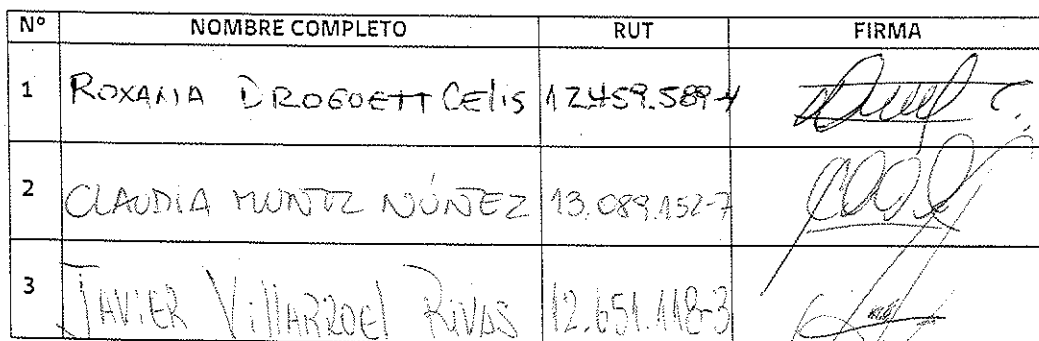 N° NOMBRE COMPLETO RUT FIRMA
1 ROXANA DROGUETT Celis 12.459.589-4
2 CLAUDIA MUÑOZ NÚÑEZ 13.089.152-7
3 JAVIER VillARROEl RIVAS 12.651.118-3